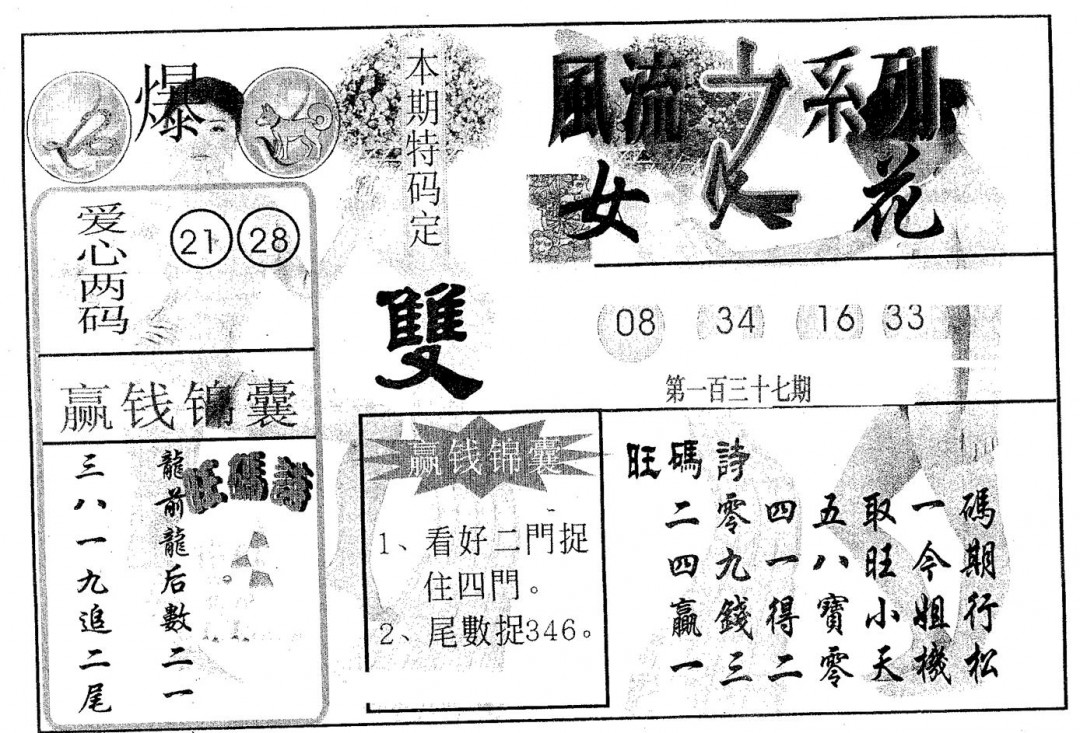 爆
本期特码定
雙
風流之系列
女人花
爱心两码
21 28
赢钱锦囊
旺碼詩
龍前龍后數二一
三八一九追二尾
08 34 16 33
第一百三十七期
赢钱锦囊
1、看好二門捉
住四門。
2、尾數捉346。
旺碼詩
二零四五取一碼
四九一八旺今期
贏錢得寶小姐行
一三二零天機松